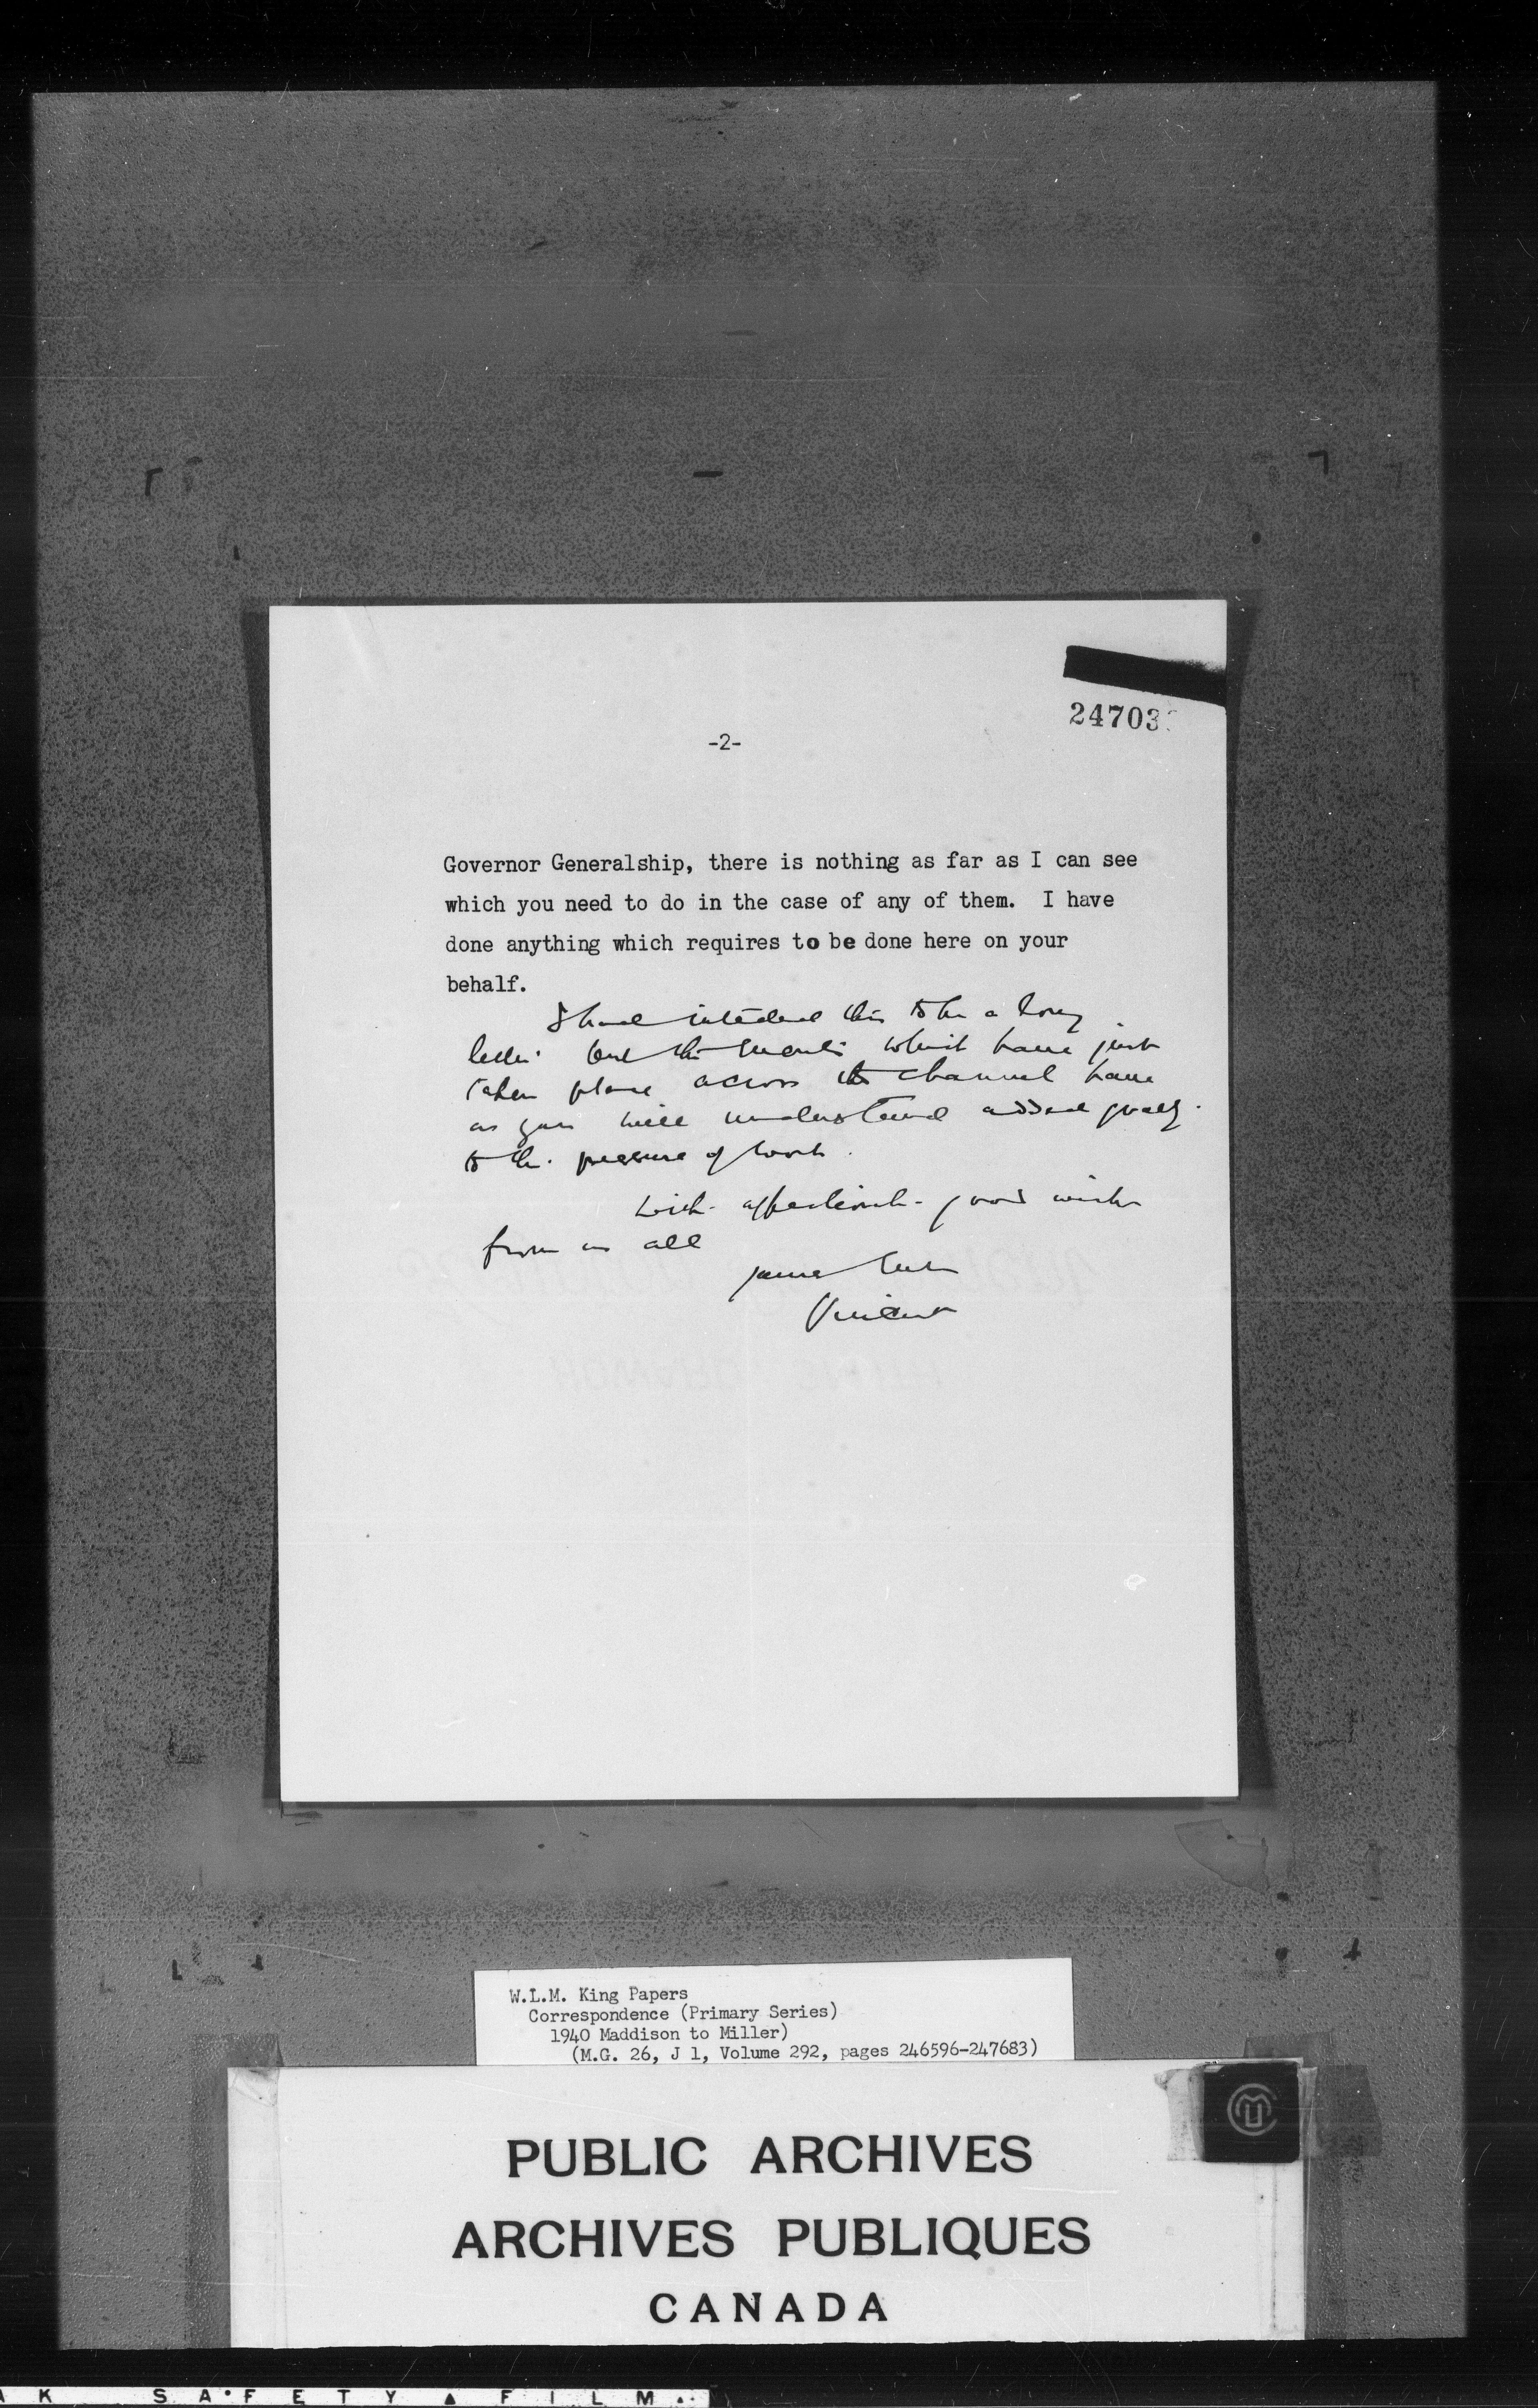 24703
-2-
Governor Generalship, there is nothing as far as I can see
which you need to do in the case of any of them. I have
done anything which requires to be done here on your
behalf.
I had intended this to be a long
letter but the events which have just
taken place across the channel have
as you will understand added greatly
to the pressure of work.
With affectionate good wishes
from us all
yours ever
Vincent
W.L.M. King Papers
Correspondence (Primary Series)
1940 Maddison to Miller)
(M.G. 26, J 1, Volume 292, pages 246596-247683)
PUBLIC ARCHIVES
ARCHIVES PUBLIQUES
CANADA
SAFETY FILM